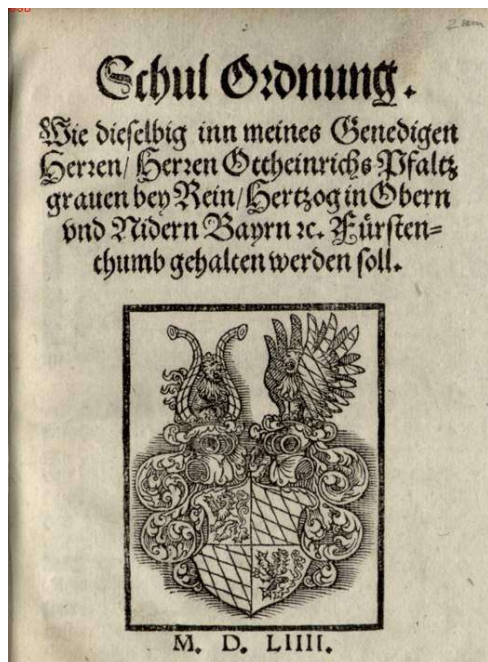 Schul Ordnung.
Wie dieselbig inn meines Genedigen
Herren/ Herren Ottheinrichs Pfaltz
grauen bey Rein/ Hertzog in Obern
vnd Nidern Bayrn ꝛc. Fürsten=
thumb gehalten werden soll.
M. D. LIIII.